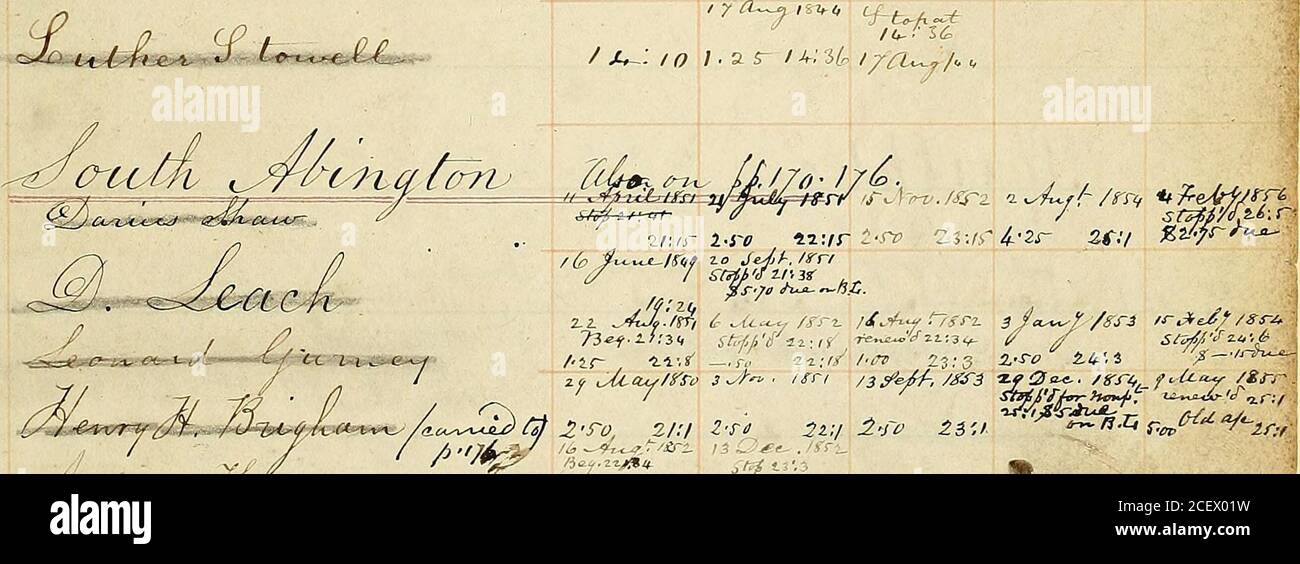 17 Aug 1844 Stop at
14:36
Luther Stowell 14:10 1.25 14:36 17 Aug/44
South Abington Also on pp. 170. 176.
11 April 1851 21 July 1851 15 Nov. 1852 2 Augt 1854 4 Feby 1856
Darius Shaw Stop 21:41 stopp'd 26:5
21:15 2.50 22:15 2.50 23:15 4.25 25:1 $2.75 due
16 June 1849 20 Sept. 1851
D. Leach Stopp'd 21:38
$5.70 due on B.L.
19:24
22 Aug. 1851 6 May 1852 16 Augt. 1852 3 Jany 1853 15 Feby 1854
Beg. 21:34 Stopp'd 22:18 renew'd 22:34 Stopp'd 24:6
Leonard Gurney 1.25 22:8 —.50 22:18 1.00 23:3 2.50 24:3 $—.15 due
29 May 1850 3 Nov. 1851 13 Sept. 1853 29 Dec. 1854 9 May 1855
stopp'd for nonpt. renew'd 25:1
25:1 $5 due
on B.L.
Henry H. Brigham (carried to) 2.50 21:1 2.50 22:1 2.50 23:1 5.00 Old a/c 25:1
p. 176
16 Augt. 1852 13 Dec. 1852
Beg. 22:34 Stop 23:3
alamy
a
alamy
a
alamy
alamy
Image ID: 2CEX01W
www.alamy.com